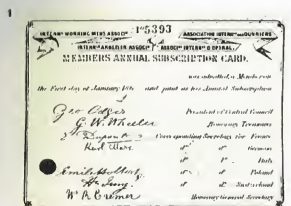 INTERNL WORKING MENS ASSOCN No 5393 ASSOCIATION INTERNLE DES OUVRIERS
INTERNL ARBEITER ASSOCN ASSOCN INTERNLE D OPERAI
MEMBERS ANNUAL SUBSCRIPTION CARD.
was admitted a Member on
the First day of January 186 and paid as his Annual Subscription
Geo Odger President of Central Council
G. W. Wheeler Honorary Treasurer
E Dupont Corresponding Secretary for France
Karl Marx do do Germany
do do Italy
do do Poland
H. Jung do do Switzerland
W. R. Cremer Honorary General Secretary